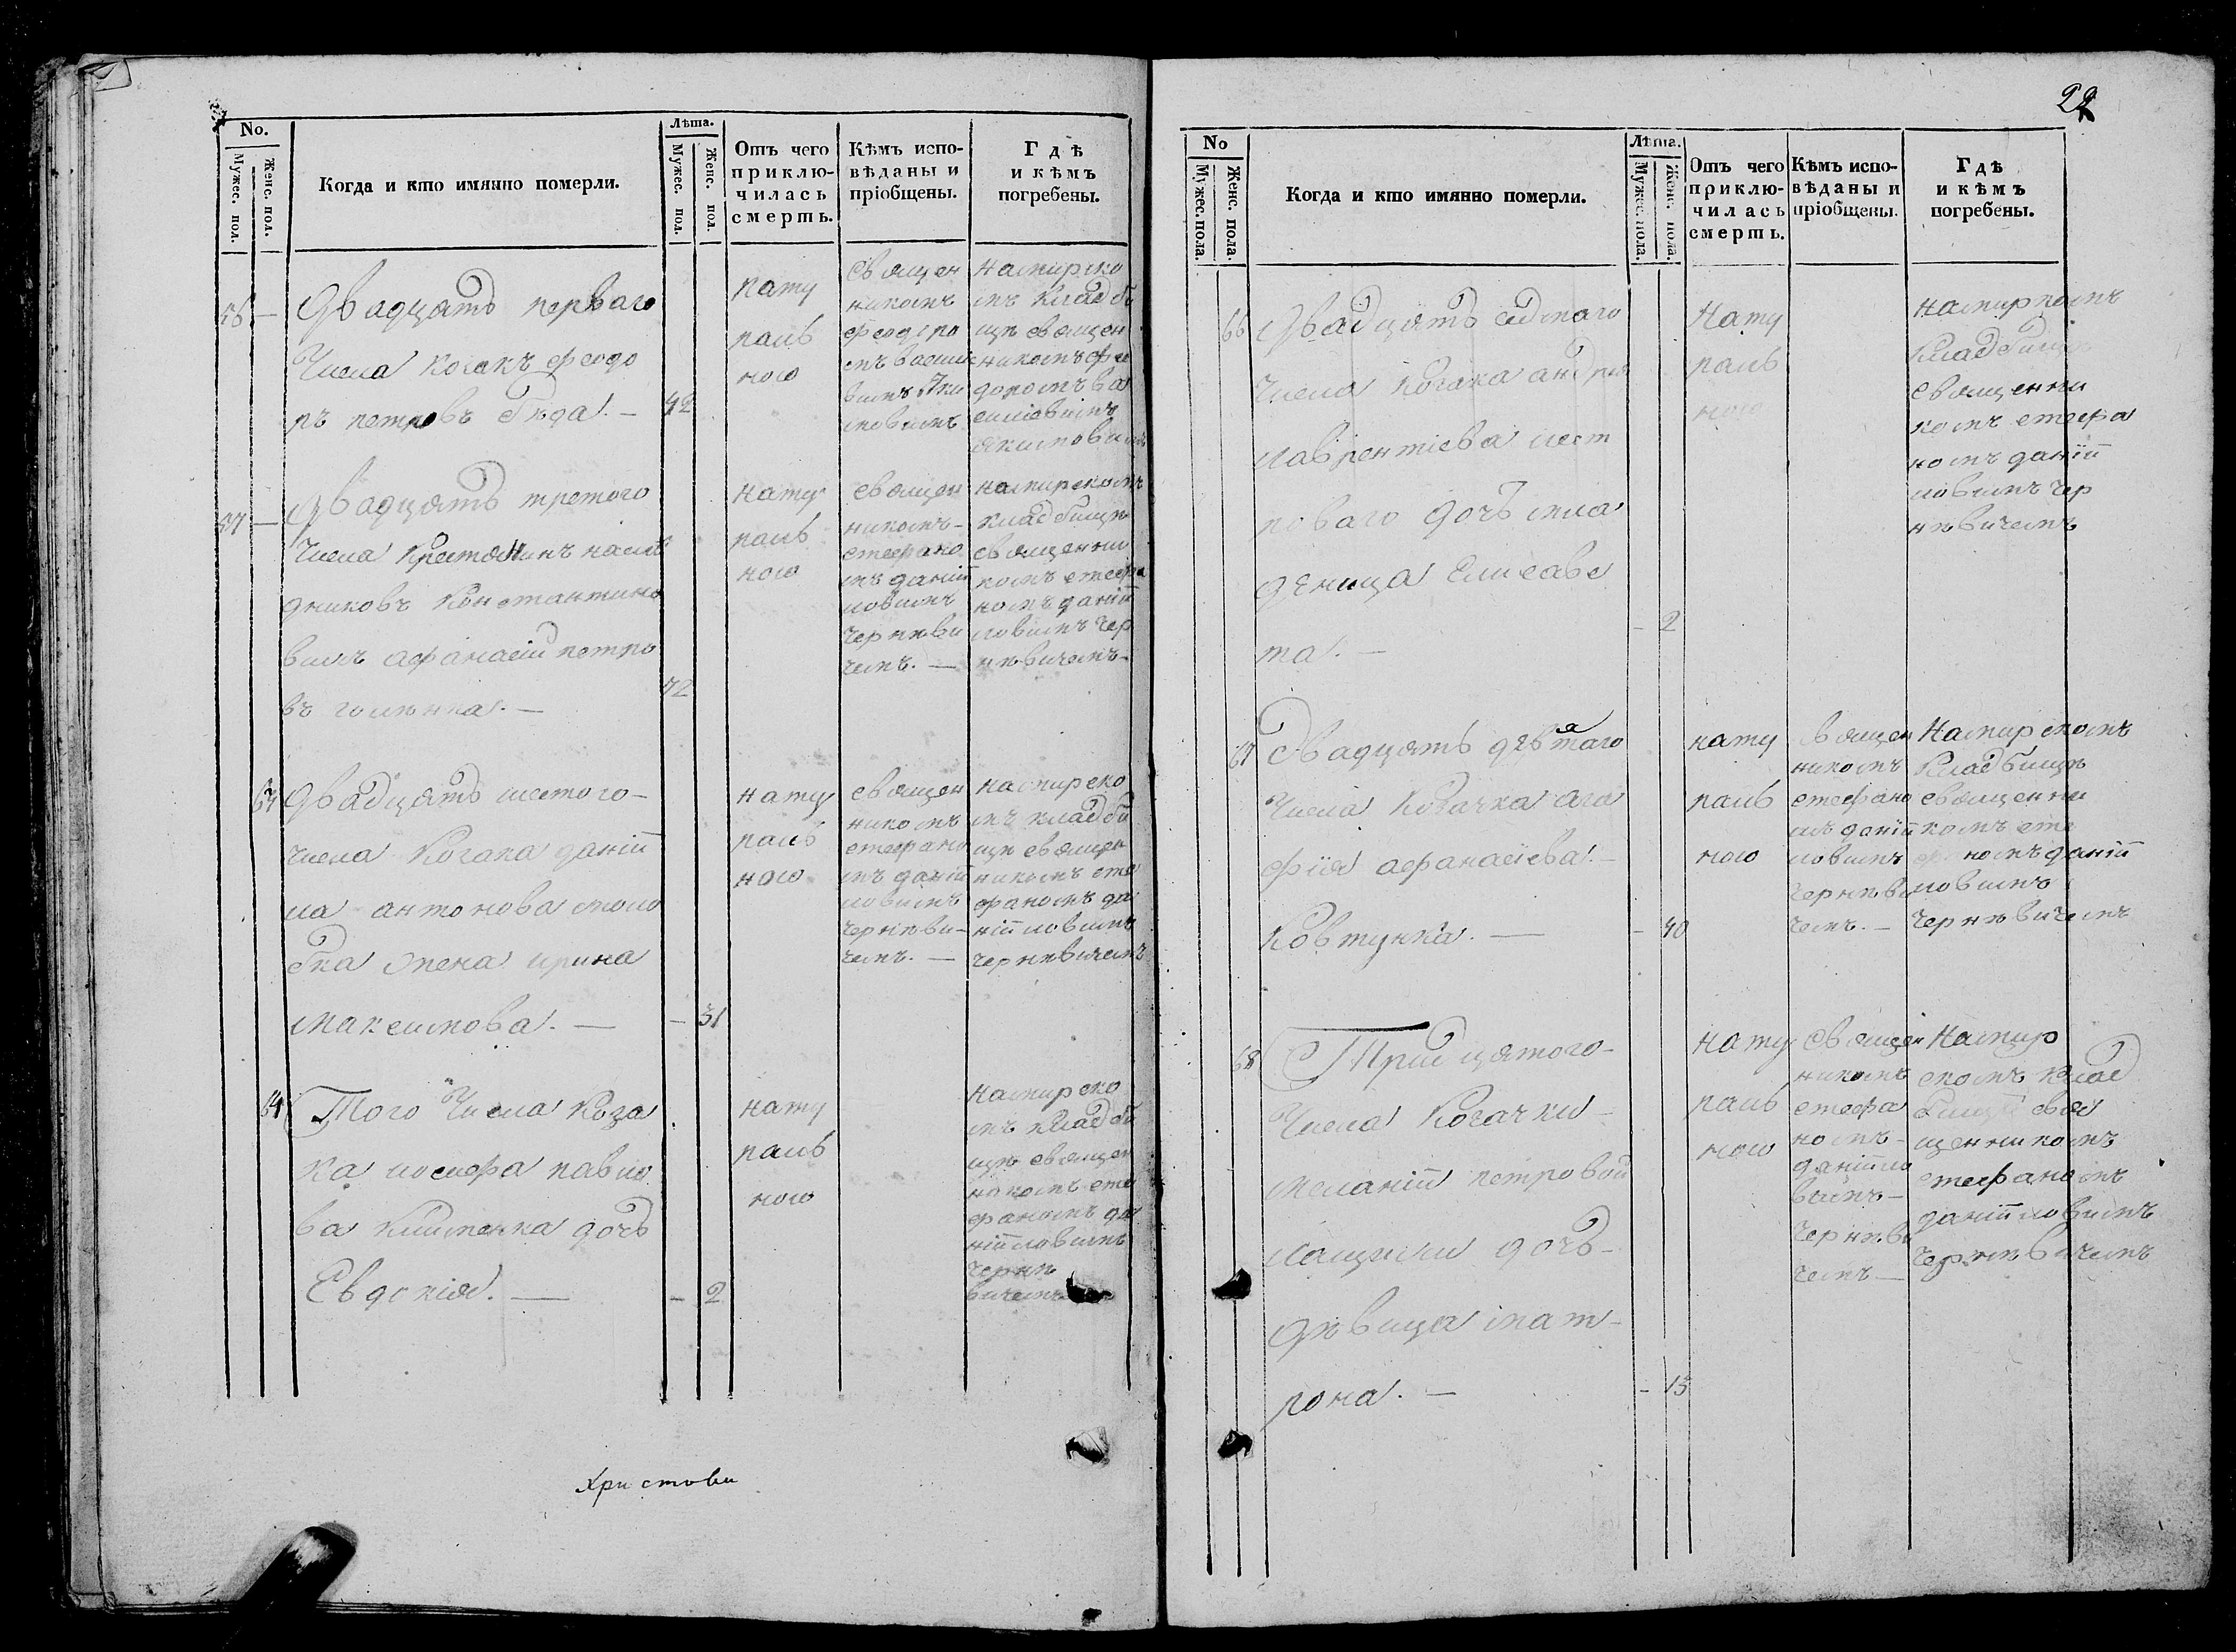 No.
Мужес. пол.
Женс. пол.
Когда и кто имянно померли.
Лѣта.
Мужес. пол.
Женс. пол.
Отъ чего
приклю-
чилась
смерть.
Кѣмъ испо-
вѣданы и
пріобщены.
Гдѣ
и кѣмъ
погребены.
56 —
Двадцять перваго
Числа козакъ феодо
ръ петровъ Бѣда. —
42
нату
раль
ною
Священ
никомъ
феодоро
мъ васили
намирско
мъ кладби
щѣ священ
никомъ фео
доромъ ва
силіовимъ
якимовимъ
57 —
Двадцять третого
Числа крестянинъ наслѣ
дниковъ Константино
вимъ афанасій петро
въ голѣнка. —
72
нату
раль
ною
священ
никомъ —
стефано
мъ даніи
ловимъ
Чернѣви
чемъ. —
намирскомъ
кладбищѣ
священни
комъ стефа
номъ даніи
ловимъ Чер
нѣвичемъ —
63
Двадцять шестого —
числа козака даніи
ла антонова
жена ирина
максимова. —
— 31
нату
раль
ною
священ
никомъ
стефано
мъ даніи
ловимъ
Чернѣви —
чемъ. —
намирско
мъ кладби
щѣ священ
никомъ сте
фаномъ да
ніиловимъ
чернѣвичемъ
64
Того Числа Коза
ка иосифа павло
ва Клименка дочь
Евдокія. —
— 2
нату
раль
ною
намирско
мъ кладби
щѣ священ
никомъ сте
фаномъ да
ніиловимъ
Чернѣ
вичемъ
Христови
22
No
Мужес. пола.
Женс. пола.
Когда и кто имянно померли.
Лѣта.
Мужес. пола.
Женс. пола.
Отъ чего
приклю-
чилась
смерть.
Кѣмъ испо-
вѣданы и
пріобщены.
Гдѣ
и кѣмъ
погребены.
66
Двадцять седмаго
Числа козака андрея
лаврентіева нест
роваго дочь мла
деница Елисаве
та. —
— 2
Нату
раль
ною
намирскомъ
кладбищѣ
священни
комъ стефа
номъ даніи
ловимъ Чер
нѣвичемъ
67
Двадцять девятаго
Числа козачка ага
фія афанасіева —
Ковтунка. —
— 40
нату
раль
ною
священ
никомъ
стефано
мъ даніи
ловимъ
Чернѣви
чемъ. —
Намирскомъ
Кладбищѣ
священни
комъ сте
фаномъ даніи
ловимъ
Чернѣвичемъ
68
Тридцятого —
Числа козачки —
меланіи петровой
дочь —
дѣвица мат —
рона. —
— 15
нату
раль
ною
Священ
никомъ
стефа
номъ —
даніило
вимъ —
Чернѣви
чемъ —
Намир
скомъ клад
бищѣ свя
щенникомъ
стефаномъ
даніиловимъ
Чернѣвичемъ